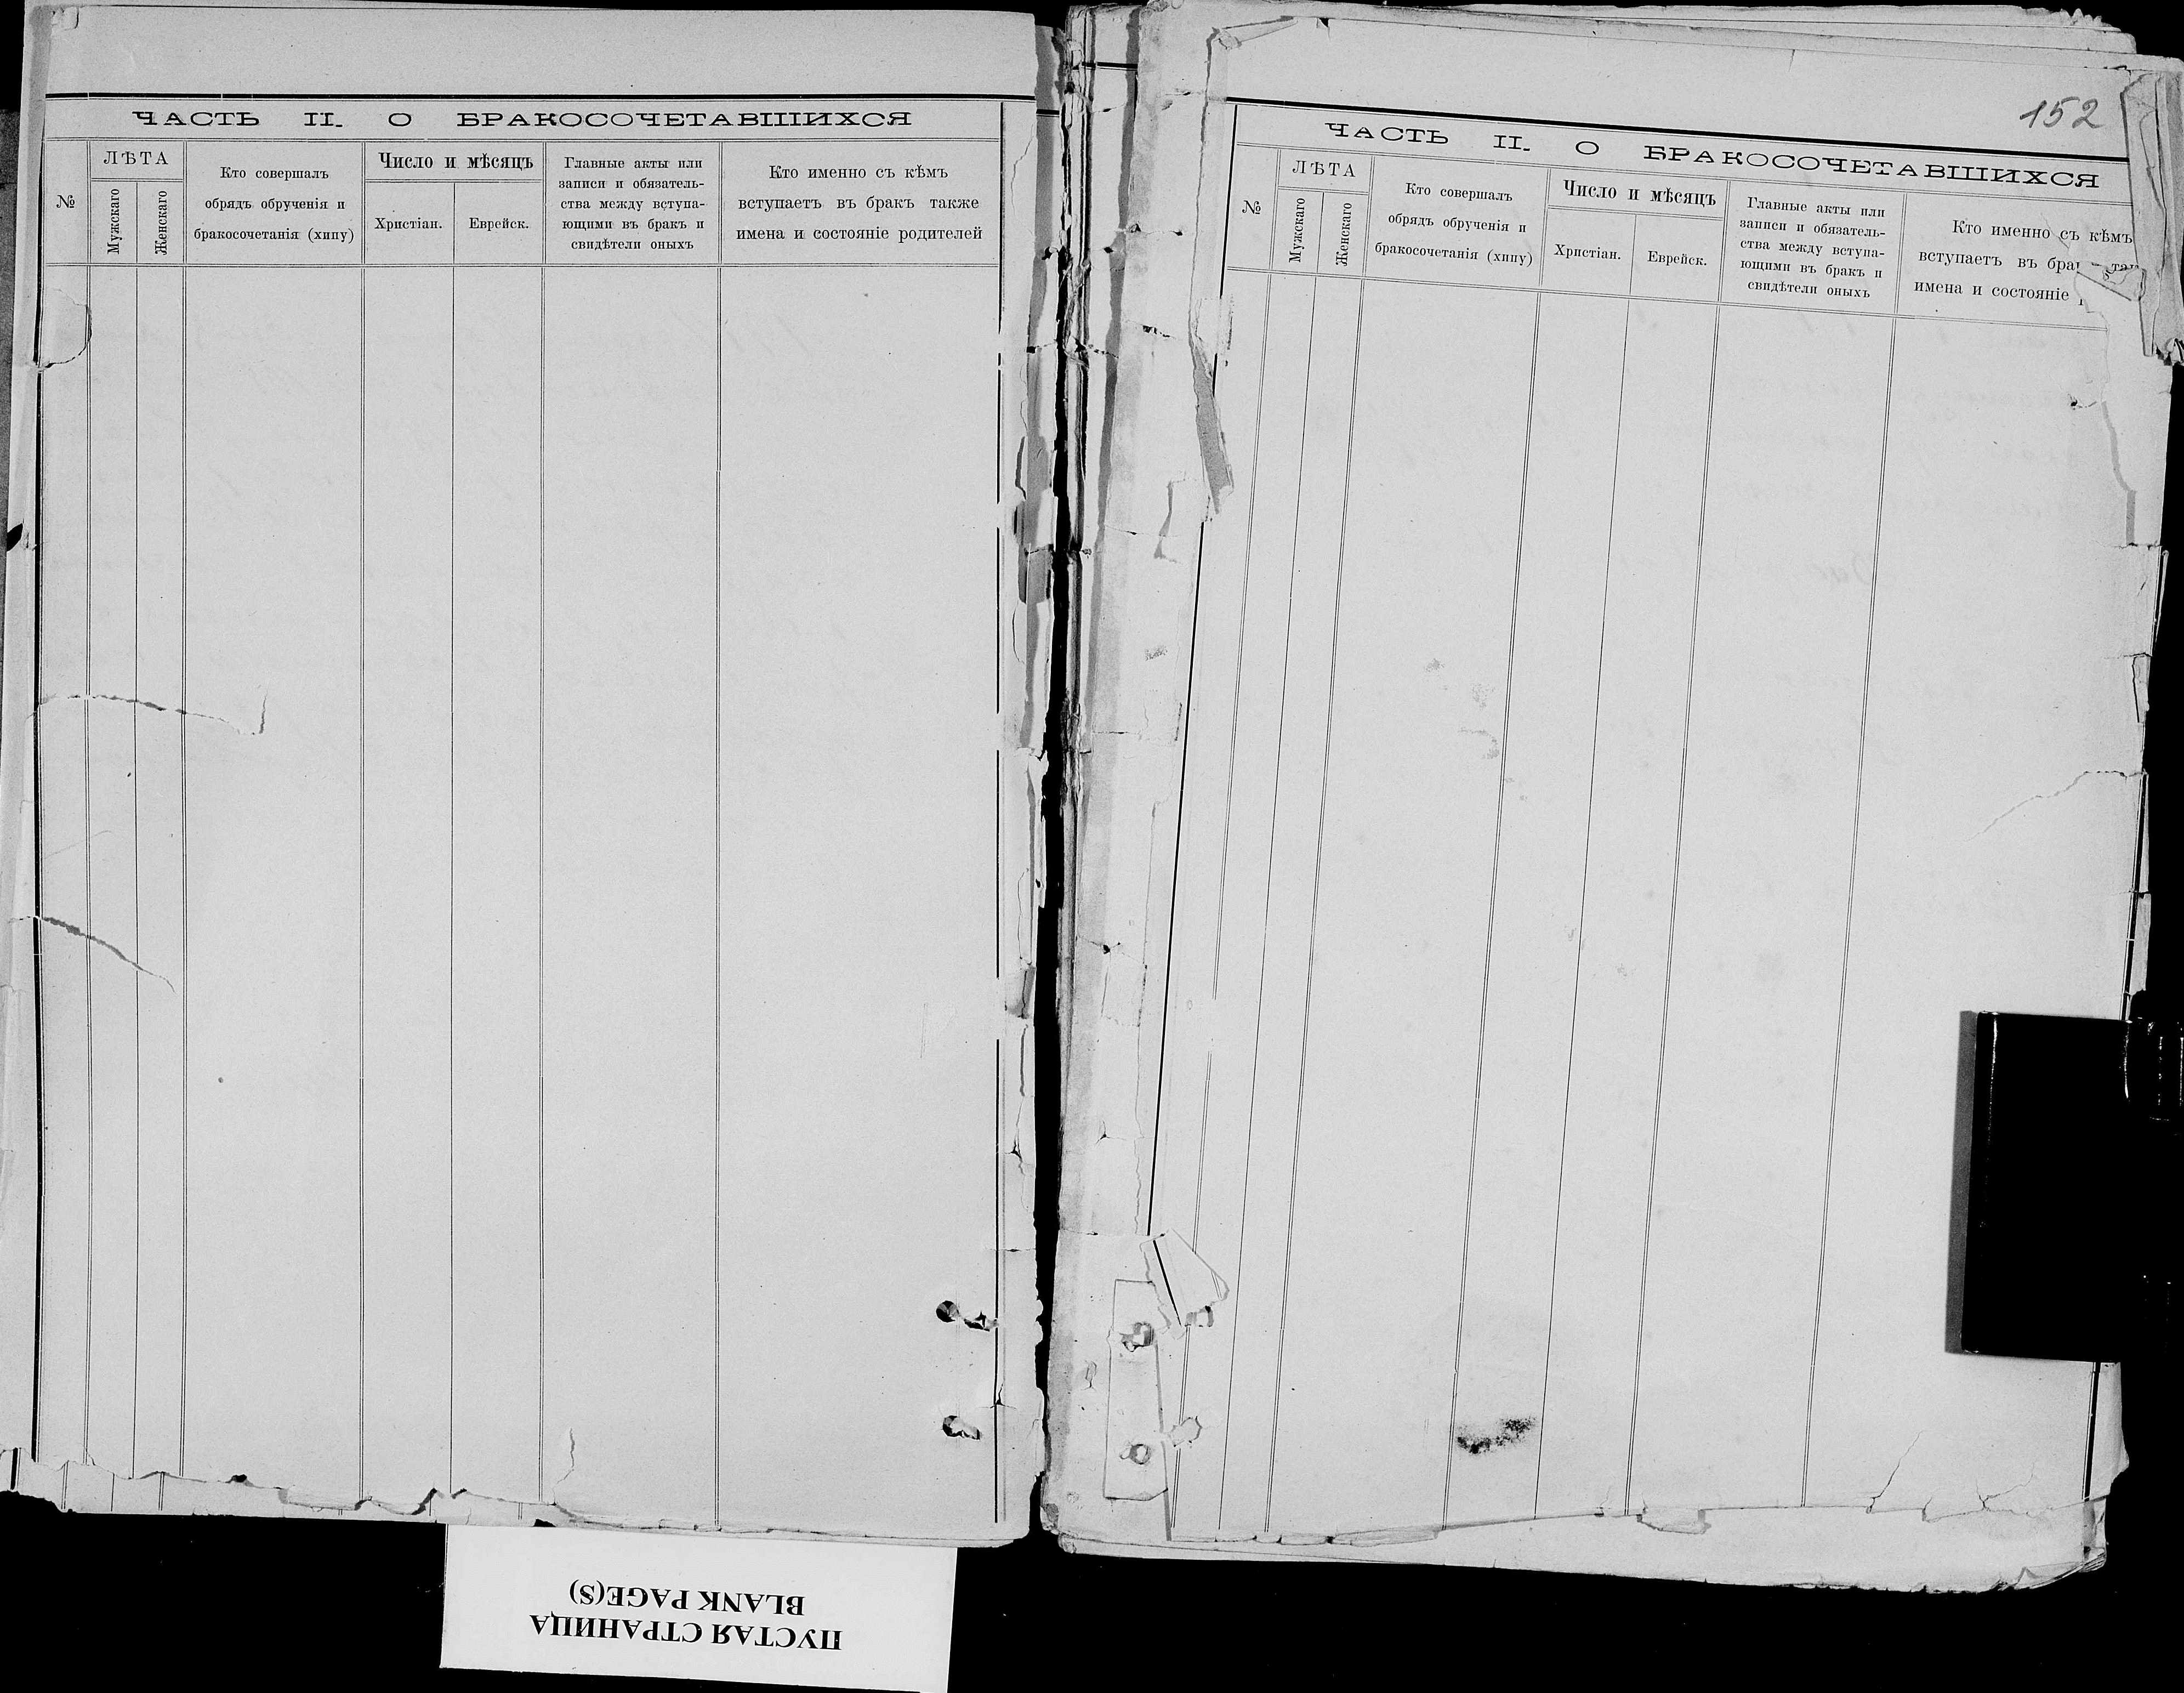 ЧАСТЬ II. О БРАКОСОЧЕТАВШИХСЯ
№
ЛѢТА
Мужскаго
Женскаго
Кто совершалъ
обрядъ обрученія и
бракосочетанія (хипу)
Число и мѣсяцъ
Христіан.
Еврейск.
Главные акты или
записи и обязатель-
ства между вступа-
ющими въ бракъ и
свидѣтели оныхъ
Кто именно съ кѣмъ
вступаетъ въ бракъ также
имена и состояніе родителей
152
ЧАСТЬ II. О БРАКОСОЧЕТАВШИХСЯ
№
ЛѢТА
Мужскаго
Женскаго
Кто совершалъ
обрядъ обрученія и
бракосочетанія (хипу)
Число и мѣсяцъ
Христіан.
Еврейск.
Главные акты или
записи и обязатель-
ства между вступа-
ющими въ бракъ и
свидѣтели оныхъ
Кто именно съ кѣмъ
вступаетъ въ
имена и состояніе
ПУСТАЯ СТРАНИЦА
BLANK PAGE(S)